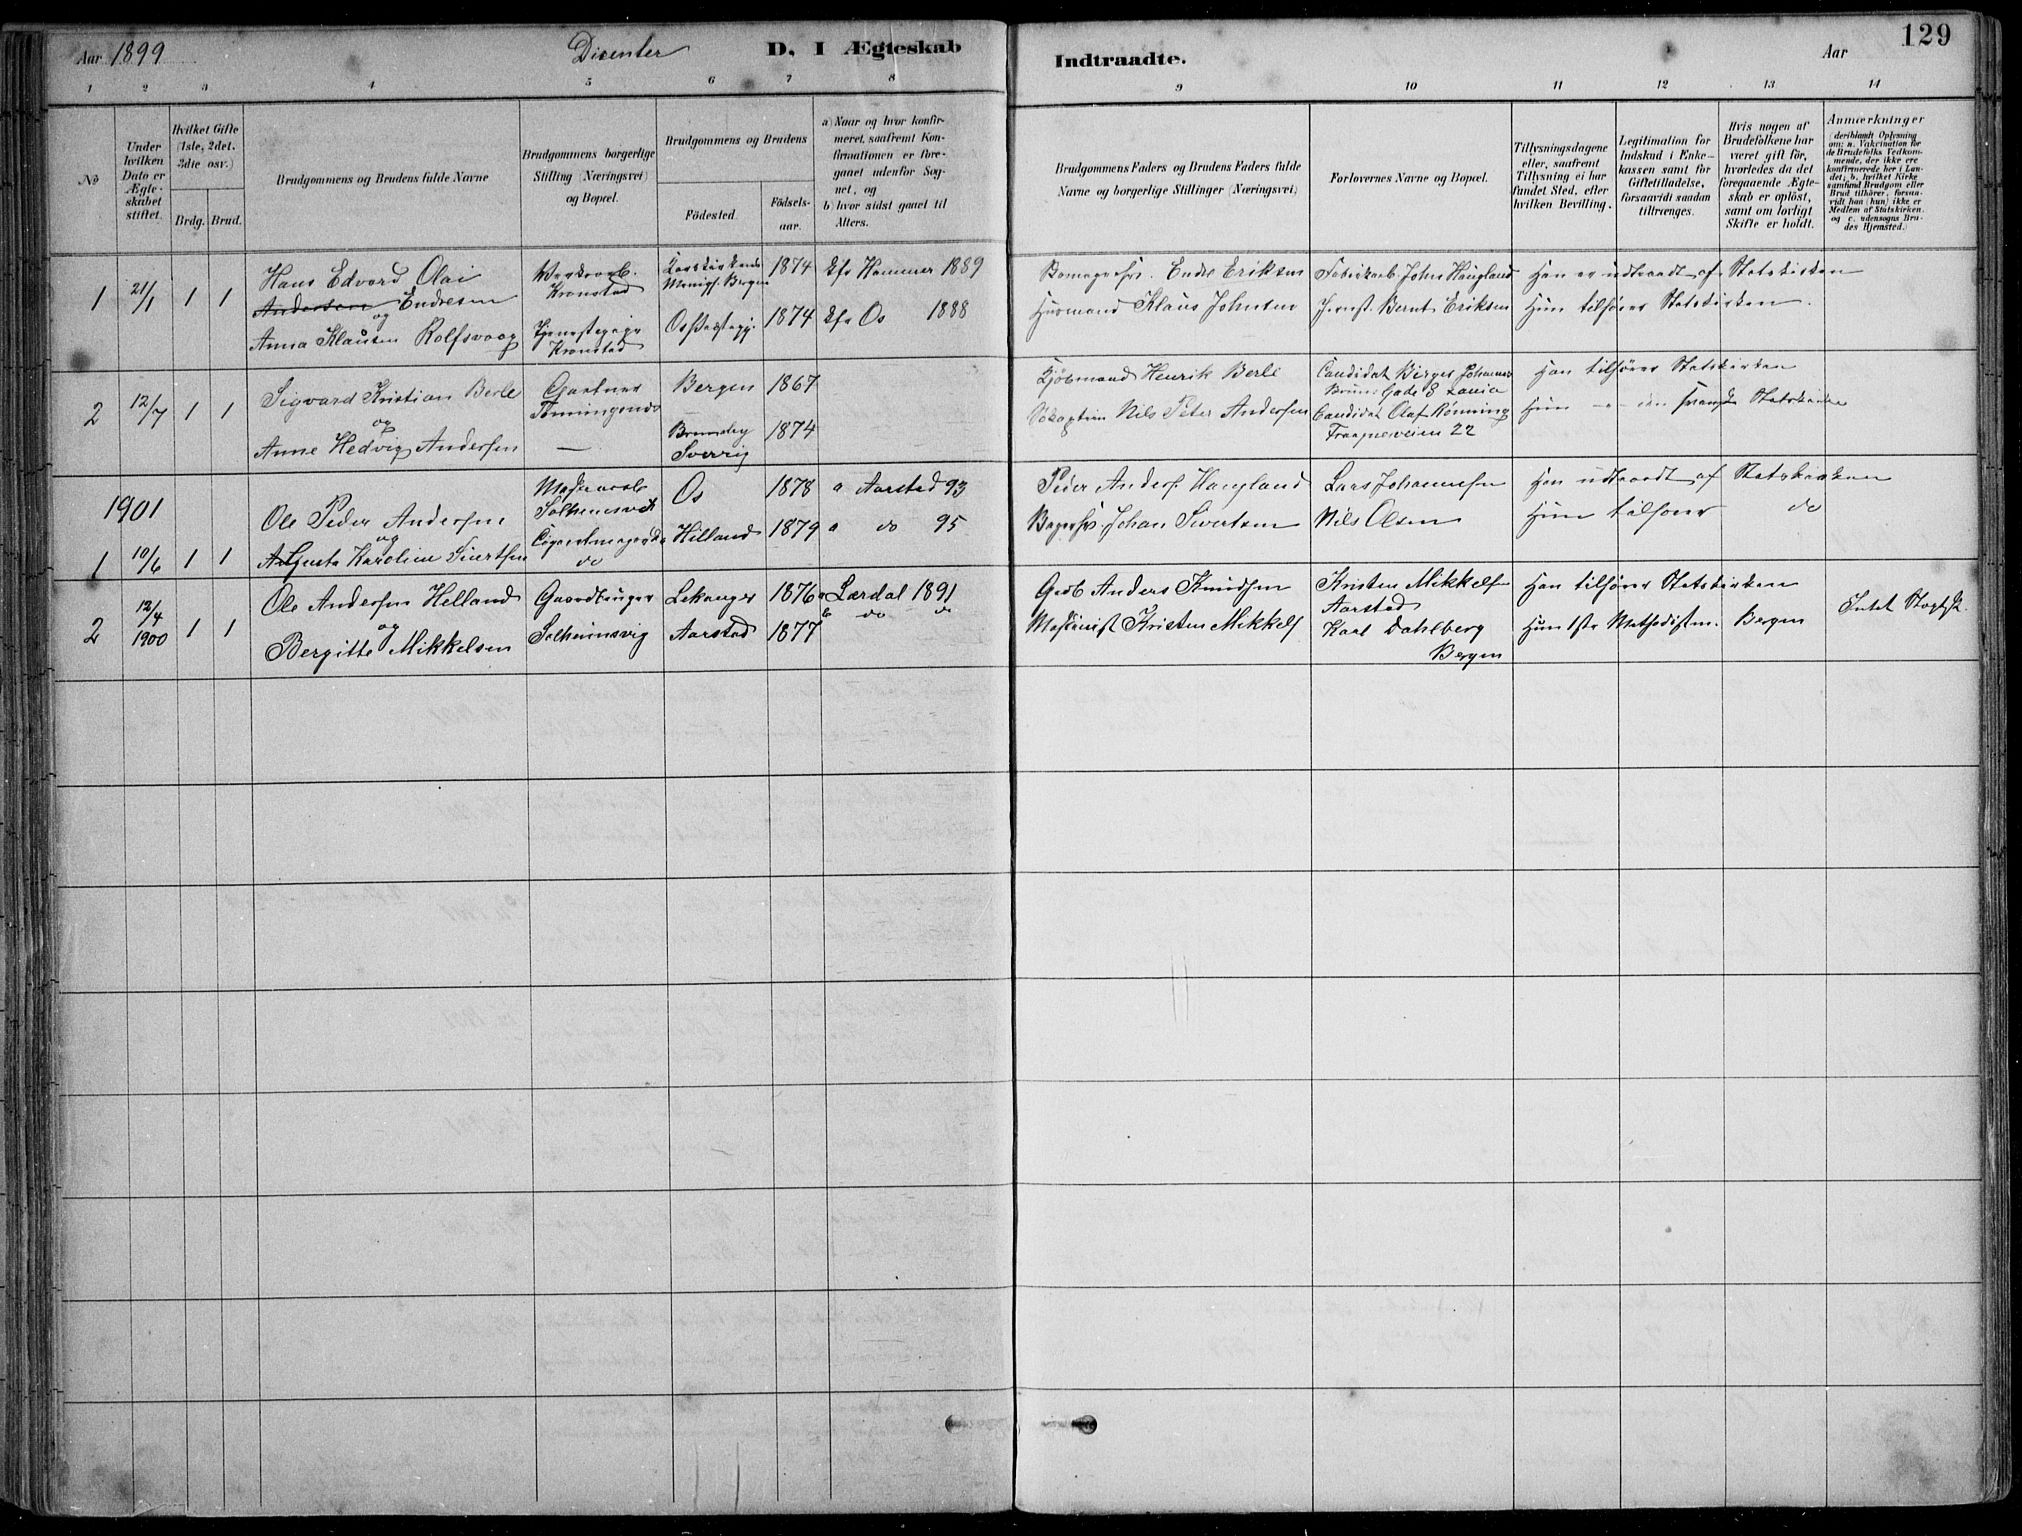 Aar 1899
Disenter
D. I Ægteskab
Indtraadte.
Aar
129
1 2 3 4 5 6 7 8 9 10 11 12 13 14
No
Under hvilken Dato er Ægteskabet stiftet.
Hvilket Gifte (1ste, 2det, 3die osv.)
Brdg. Brud.
Brudgommens og Brudens fulde Navne
Brudgommens borgerlige Stilling (Næringsvei) og Bopæl.
Brudgommens og Brudens
Födested.
Födsels-aar.
a) Naar og hvor konfirmeret, saafremt Konfirmationen er foregaaet udenfor Sognet, og
b) hvor sidst gaaet til Alters.
Brudgommens Faders og Brudens Faders fulde Navne og borgerlige Stillinger (Næringsvei)
Forlovernes Navne og Bopæl.
Tillysningsdagene eller, saafremt Tillysning ei har fundet Sted, efter hvilken Bevilling.
Legitimation for Indskud i Enkekassen samt for Giftetilladelse, forsaavidt saadan tiltrænges.
Hvis nogen af Brudefolkene har været gift för, hvorledes da det foregaaende Ægteskab er oplöst, samt om lovligt Skifte er holdt.
Anmærkninger (deriblandt Oplysning om: a. Vakcination for de Brudefolks Vedkommende, der ikke ere konfirmerede her i Landet; b. hvilket Kirkesamfund Brudgom eller Brud tilhörer, forsaavidt han (hun) ikke er Medlem af Statskirken. og c. udensogns Brudes Hjemsted.)
1 21/1 1 1
Hans Edvard Olai
Andersen Endresen
og
Anna Klausen Rolfsvaag
Kronstad
Tjenestepige
Kronstad
Korskirkens
Menigh. Bergen
Os
1874
1874
Hammer 1889
Os 1888
Endre Eriksen
Husmand Klaus Johnsen
Fabrikarb. John Haugland
Bernt Eriksen
Han er udtraadt af Statskirken
Hun tilhører Statskirken.
2 12/7 1 1
Sigvard Kristian Berle
og
Anne Hedvig Andersen
Gartner
—
Bergen
Sverrig
1867
1874
Kjøbmand Henrik Berle
Nils Peter Andersen
Candidat Birger Johannes
Candidat Olaf Rønning
Fragneveien 22
Han tilhører Statskirken
Hun - " - den svenske Statskirke
1901
1 10/6 1 1
Ole Peder Andersen
og
Agusta Karoline Sivertsen
Solheimsvik
do
Os
Hilland
1878
1879
a Aarstad 93
a do 95
Peder Anders. Haugland
Johan Sivertsen
Lars Johannesen
Nils Olsen
Han udtraadt af Statskirken
Hun tilhører do
2 12/4 1900 1 1
Ole Andersen Helland
og
Bergitte Mikkelsen
Gaardbruger
Solheimsvig
Lekanger
Aarstad
1876
1877
a Lærdal 1891
b do do
Gaarb Anders Knudsen
Maskinist Kristen Mikkels
Kristen Mikkelsen
Aarstad
Karl Dahlberg
Bergen
Han tilhører Statskirken
Hun 1ste Methodistm. Bergen
Intet Slægtsk.